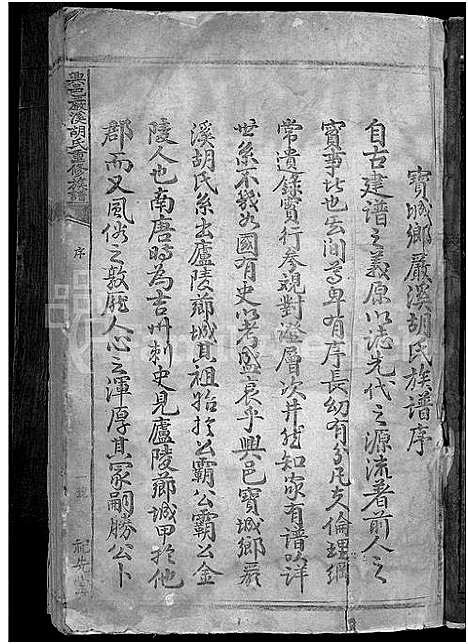 寶城鄉嚴溪胡氏族譜序
自古建譜之義原以誌先代之源流著前人之
實事比也云间尊卑有序長幼有分凡夫倫理綱
常遺錄實行参視對澄層次井然知家有譜以詳
世系不猶國有史以考盛衰乎興邑寶城鄉嚴
溪胡氏系出廬陵薌城其祖始於公霸公霸公金
陵人也南唐時為吉州刺史見廬陵薌城甲於他
郡而又風俗之敦厖人心之渾厚其冢嗣勝公卜
興邑嚴溪胡氏重修族譜
序